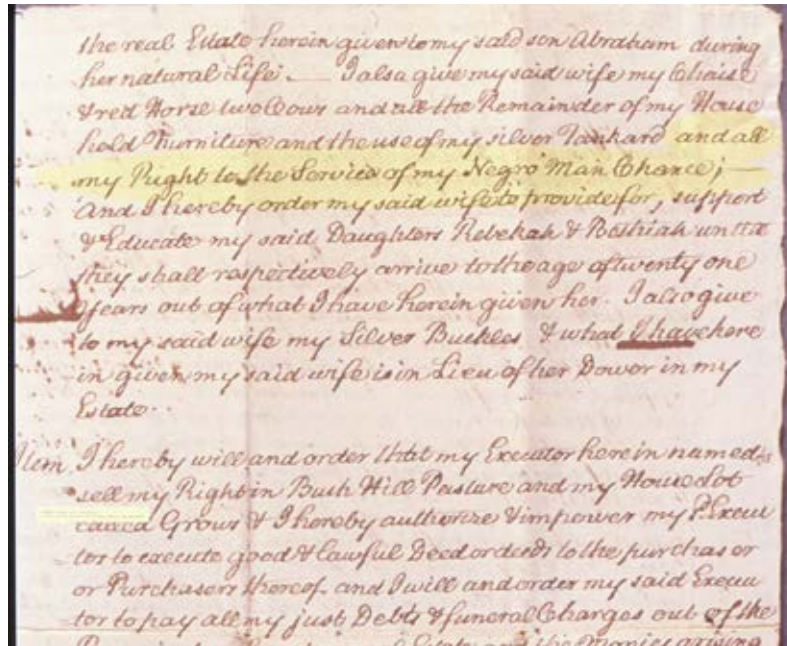 the real Estate herein given to my said son Abraham during
her natural Life. — I also give my said wife my Chaise
& red Horse two Cows and all the Remainder of my House
hold Furniture and the use of my silver Tankard and all
my Right to the Service of my Negro Man Chance; —
And I hereby order my said wife to provide for, support
& Educate my said Daughters Rebekah & Bethiah until
they shall respectively arrive to the age of twenty one
Years out of what I have herein given her. I also give
to my said wife my Silver Buckles & what I have here
in given my said wife is in Lieu of her Dower in my
Estate.
Item I hereby will and order that my Executor herein named
sell my Right in Bush Hill Pasture and my House Lot
called Grows & I hereby authorize & impower my Execu
tor to execute good & lawful Deed or deeds to the purchasor
or Purchasers thereof and I will and order my said Execu
tor to pay all my just Debts & funeral Charges out of the
Estate and the Monies arising